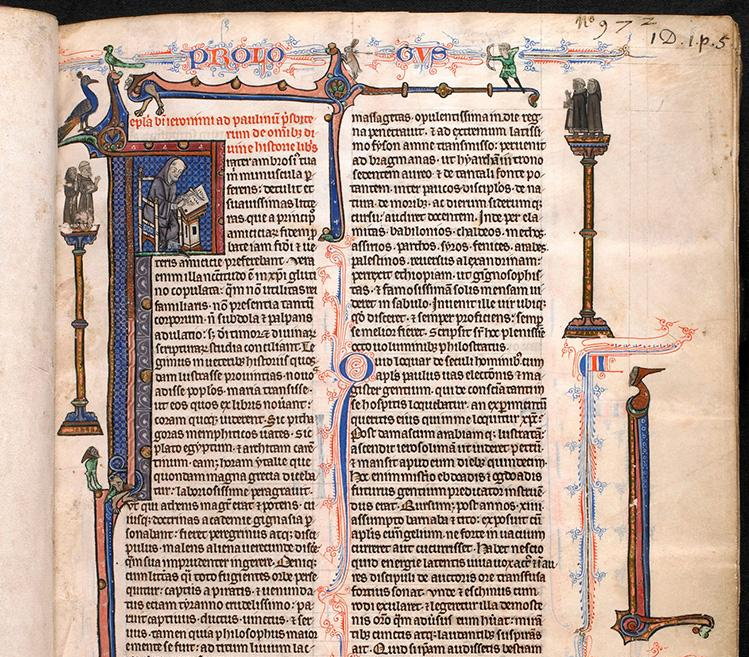 PROLO GUS
No 972
1D.1.p.5
epła bi ieronimi ad paulinū p̄sbite
rum de omībꝫ di
uine historie libꝭ
frater ambrosiꝰ tua
m̄ munuscula p
ferens: detulit et
suauissimas litte
ras. que a principio
amicitiaꝝ fidem p
bate iam fidei ⁊ ue
teris amicicie preferebant. Vera
enim illa necessitudo ē ⁊ xp̄i gluti
no copulata: quā non utilitas rei
familiaris. nō presentia tantū
corporum. ñ subdola ⁊ palpans
adulatio: sꝫ di timor ⁊ diuinaꝝ
scripturaꝝ studia conciliant. Le
gimus in ueteribꝫ historiis quos
dam lustrasse prouintias. nouos
adisse poplos. maria transisse.
ut eos quos ex libris nouerant:
coram quoqꝫ uiderent. Sic pitha
goras memphiticos uates. sic
plato egyptum. ⁊ architam taren
tinum. eamqꝫ horam ytalie que
quondam magna grecia diceba
tur: laboriosissime peragrauit.
Vt qui athenis magr̄ erat ⁊ potens. cu
iusqꝫ doctrinas academie gignasia p
sonabant: fieret peregrinus atqꝫ disci
pulus. malens aliena uerecunde disce
re quā sua imprudenter ingerere. Deniqꝫ
cum litteras q̄i toto fugientes orbe perse
quitur: captus a piratis ⁊ uenunda
tus etiam tyranno crudelissimo: pa
ruit captiuus. ductus. uinctus. ⁊ ser
uus. tamen quia philosophus maior
emente se fuit: ad titum liuium lac
massagetas. opulentissima indie reg
na penetrauit. ⁊ ad extremum latissi
mo fyson amne transmisso: peruenit
ad bragmanas. ut hyarcham in trono
sedentem aureo ⁊ de tantali fonte po
tantem. inter paucos disciplos. de na
tura. de moribꝫ. ac dierum siderumqꝫ
cursu: audiret docentem. Inde per ela
mitas. babilonios. chaldeos. medos.
assirios. parthos. syros. fenices. arabes.
palestinos. reuersus alexandriam:
perrexit ethiopiam. ut gignosophis
tas. ⁊ famosissimā solis mensam ui
deret in sabulo. Inuenit ille uir ubiqꝫ
qd̄ disceret. ⁊ semper proficiens: semp
se melior fieret. Scripsit sr̄ hoc plenisse
octo uoluminibꝫ philostratus.
Quid loquar de seculi hominibꝫ cum
apl̄s paulus uas electōnis ⁊ ma
gister gentium. qui de consciā tanti in
se hospitis loquebatur. an experimentū
queritis eius qui in me loquitur xp̄c:
Post damascum arabiamqꝫ lustratā:
ascendit ierosolimā ut uideret petrū.
⁊ mansit apud eum diebꝫ quindecim.
Hoc enim misterio ebdoadis ⁊ ogdoadis
futurus gentium predicator instruen
dus erat. Rursum post annos .xiiii.
assumpto barnaba ⁊ tito: exposuit cū
apl̄is euuāgelium. ne forte in uacuum
curreret aut cucurrisset. Habet nescio
quid energie latentis uiua uox actꝰ ⁊ au
res discipuli de auctoris ore transfusa
fortius sonat. Vnde ⁊ eschinus cum
rodi exularet. ⁊ legeretur illa demoste
nis orō quā aduersus eum habuerat: miran
tibꝫ cunctis atqꝫ laudantibꝫ suspirās
ait. Quid si ipsam audissetis bestiam